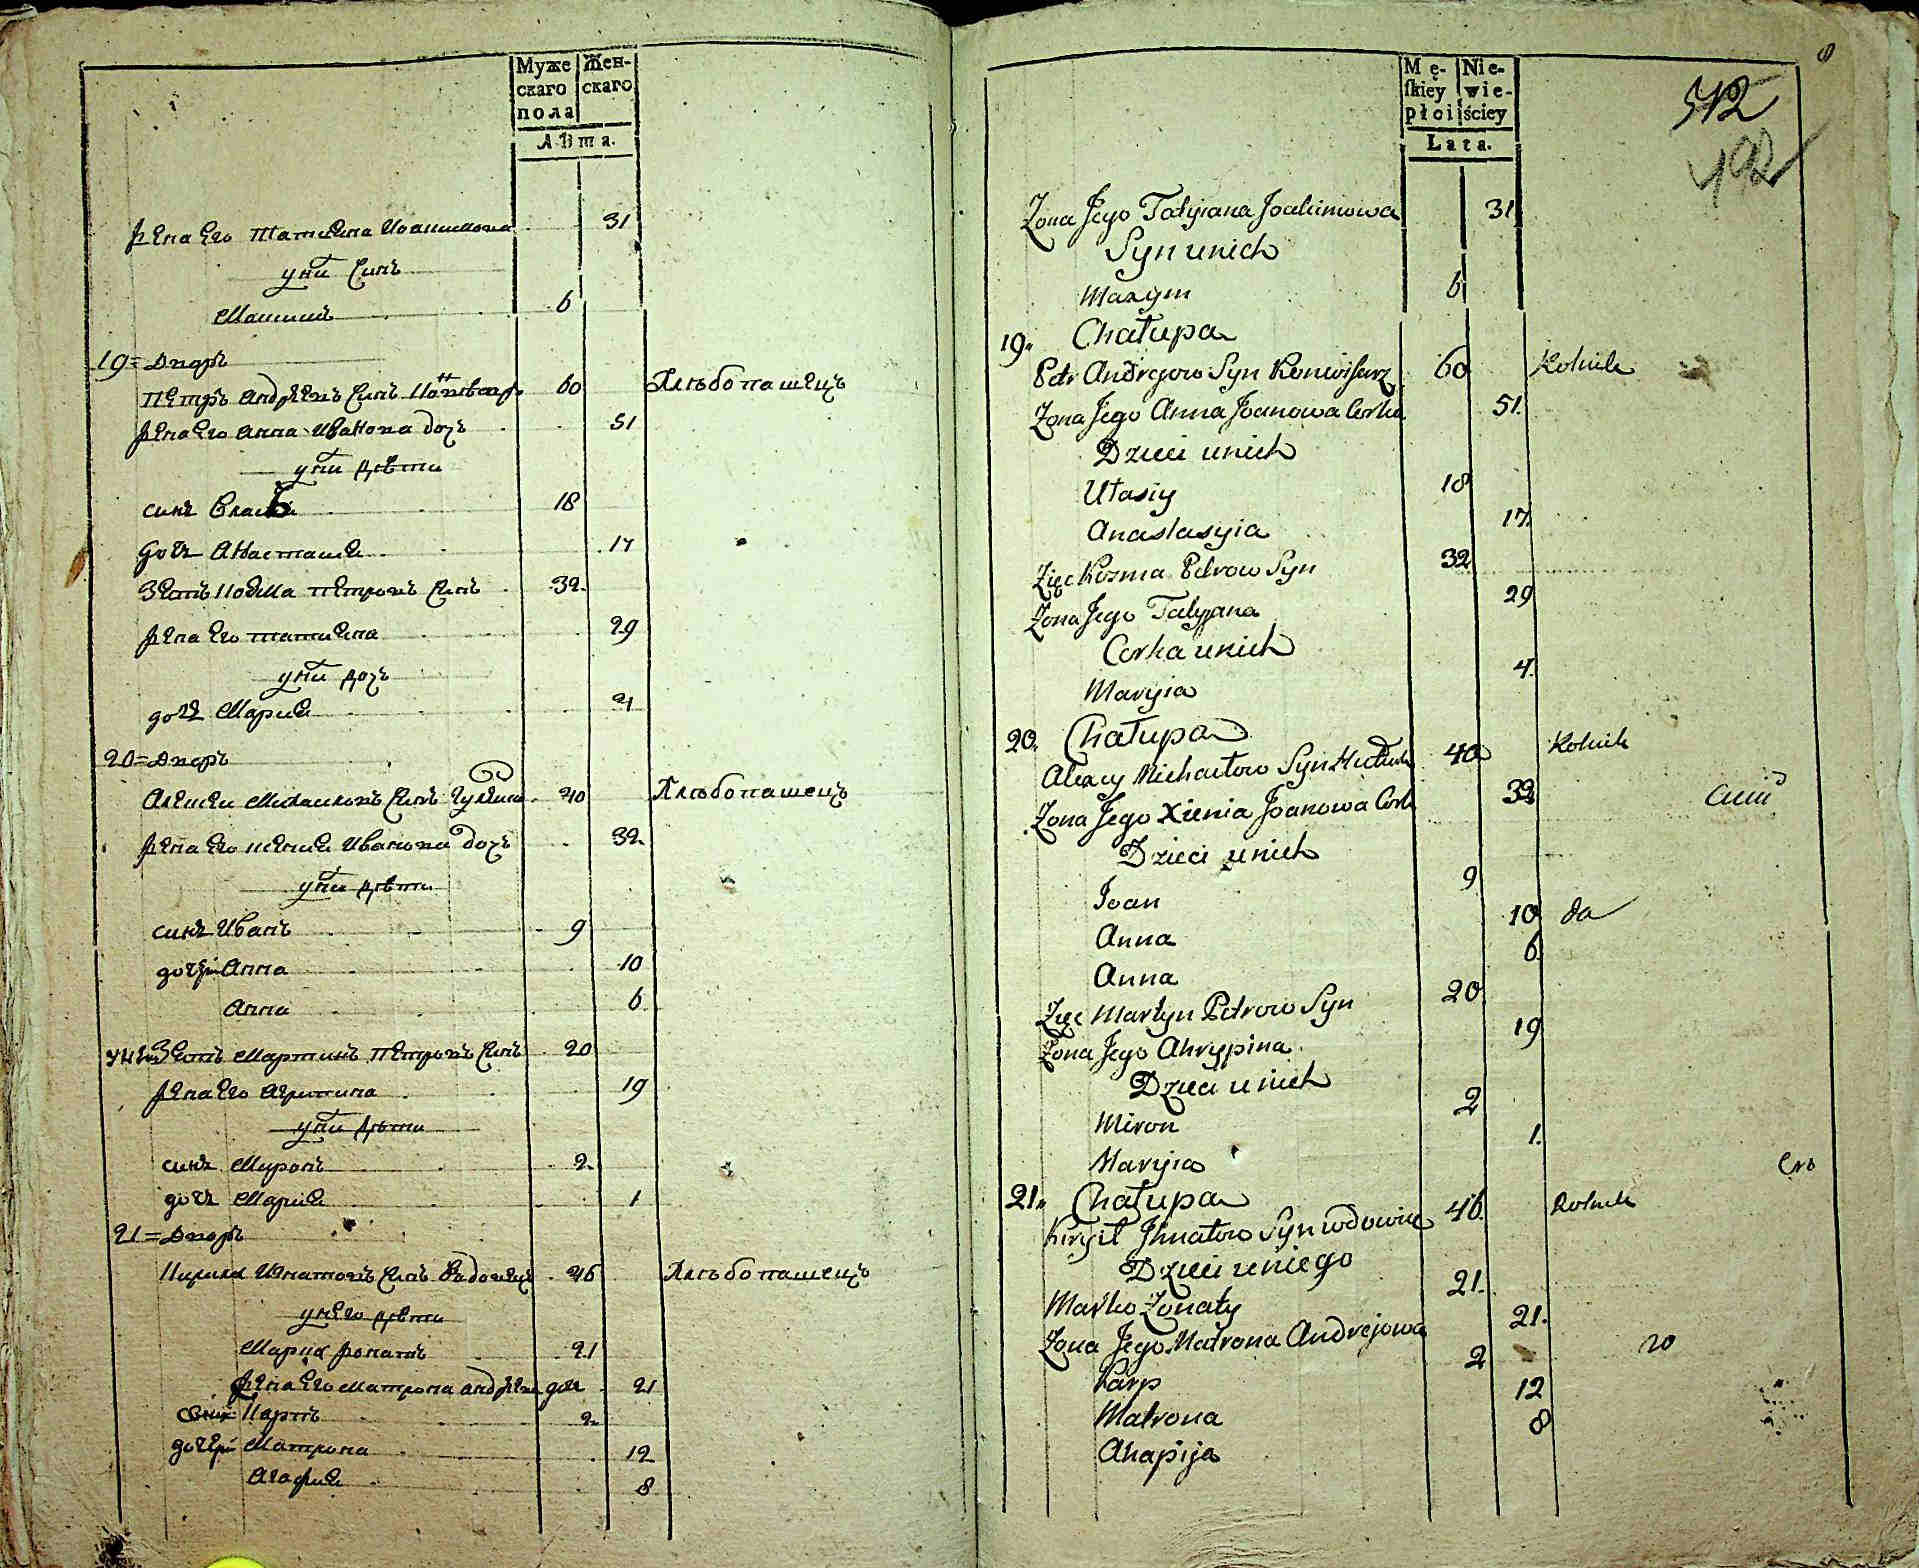 Муже
скаго
пола
Жен-
скаго
Лѣта.
жена его татиана Иоакимова 31
у них синъ
Максимъ 6
19 = Дворъ
петръ андреевъ синъ 60 Хлѣбопашецъ
жена его анна Иванова дочь 51
у них дѣти
синъ Власий 18
дочь Анастасия 17
Зять Козма петровъ синъ 32
жена его татиана 29
у них дочь
дочь Мария 4
20 = Дворъ
Алексей Михайловъ синъ 40 Хлѣбопашецъ
жена его ксения Иванова дочь 32
у них дѣти
синъ Иванъ 9
дочери Анна 10
Анна 6
Зять Мартинъ петровъ синъ 20
жена его агрипина 19
у них дѣти
синъ Миронъ 2
дочь Мария 1
21 = Дворъ
Кирила Игнатовъ синъ вдовецъ 46 Хлѣбопашецъ
у него дѣти
Марко женатъ 21
жена его матрона андреева дочь 21
синъ Карпъ 2
дочери Матрона 12
Агафия 8
Mę-
skiey
płoi
Nie-
wie-
ściey
Lata.
512
492
Zona Jego Tatyiana Joakimowa 31
Syn u nich
Maxym 6
19. Chałupa
Petr Andrejow Syn Konwisarz 60 Rolnik
Zona Jego Anna Joanowa Corka 51.
Dzieci u nich
Ułasiy 18
Anastasyia 17.
Zięc Kozma Petrow Syn 32
Zona Jego Tatyjana 29
Corka u nich
Maryia 4.
20. Chałupa
Alexey Michaiłow Syn 40 Rolnik
Zona Jego Xienia Joanowa Cork 32
Dzieci u nich
Joan 9
Anna 10 da
Anna 6
Zięc Martyn Petrow Syn 20
Zona Jego Ahrypina 19
Dzieci u nich
Miron 2
Maryia 1.
21. Chałupa
Kirył Ihnatow Syn wdowiec 46. Rolnik
Dzieci u niego
Marko Zonaty 21.
Zona Jego Matrona Andrejowa 21.
Karp 2
Matrona 12
Ahapija 8